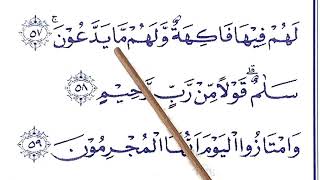 لَهُمْ فِيْهَا فَاكِهَةٌ وَّلَهُمْ مَّا يَدَّعُوْنَ ۚۖ ۝٥٧
سَلٰمٌ ۗ قَوْلًا مِّنْ رَّبٍّ رَّحِيْمٍ ۝٥٨
وَامْتَازُوا الْيَوْمَ اَيُّهَا الْمُجْرِمُوْنَ ۝٥٩